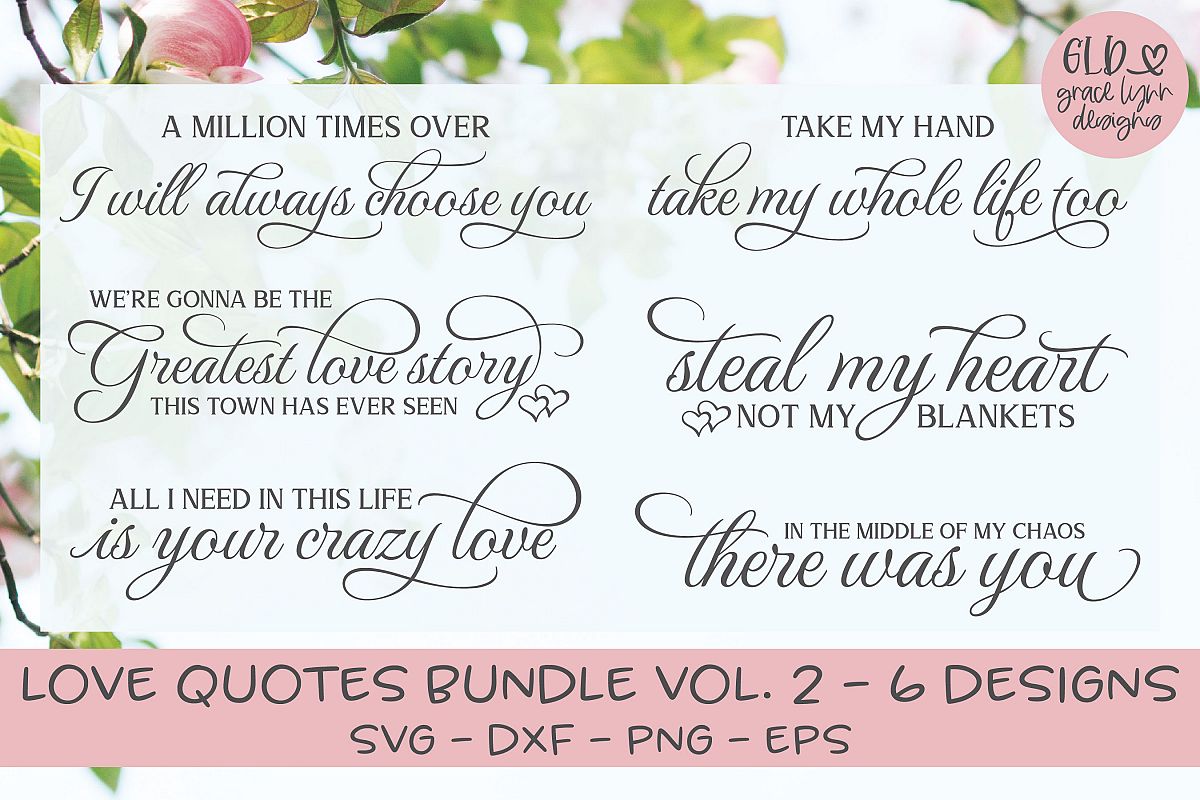 GLD
grace lynn
designs
A MILLION TIMES OVER
I will always choose you
TAKE MY HAND
take my whole life too
WE'RE GONNA BE THE
Greatest love story
THIS TOWN HAS EVER SEEN
steal my heart
NOT MY BLANKETS
ALL I NEED IN THIS LIFE
is your crazy love
IN THE MIDDLE OF MY CHAOS
there was you
LOVE QUOTES BUNDLE VOL. 2 - 6 DESIGNS
SVG - DXF - PNG - EPS